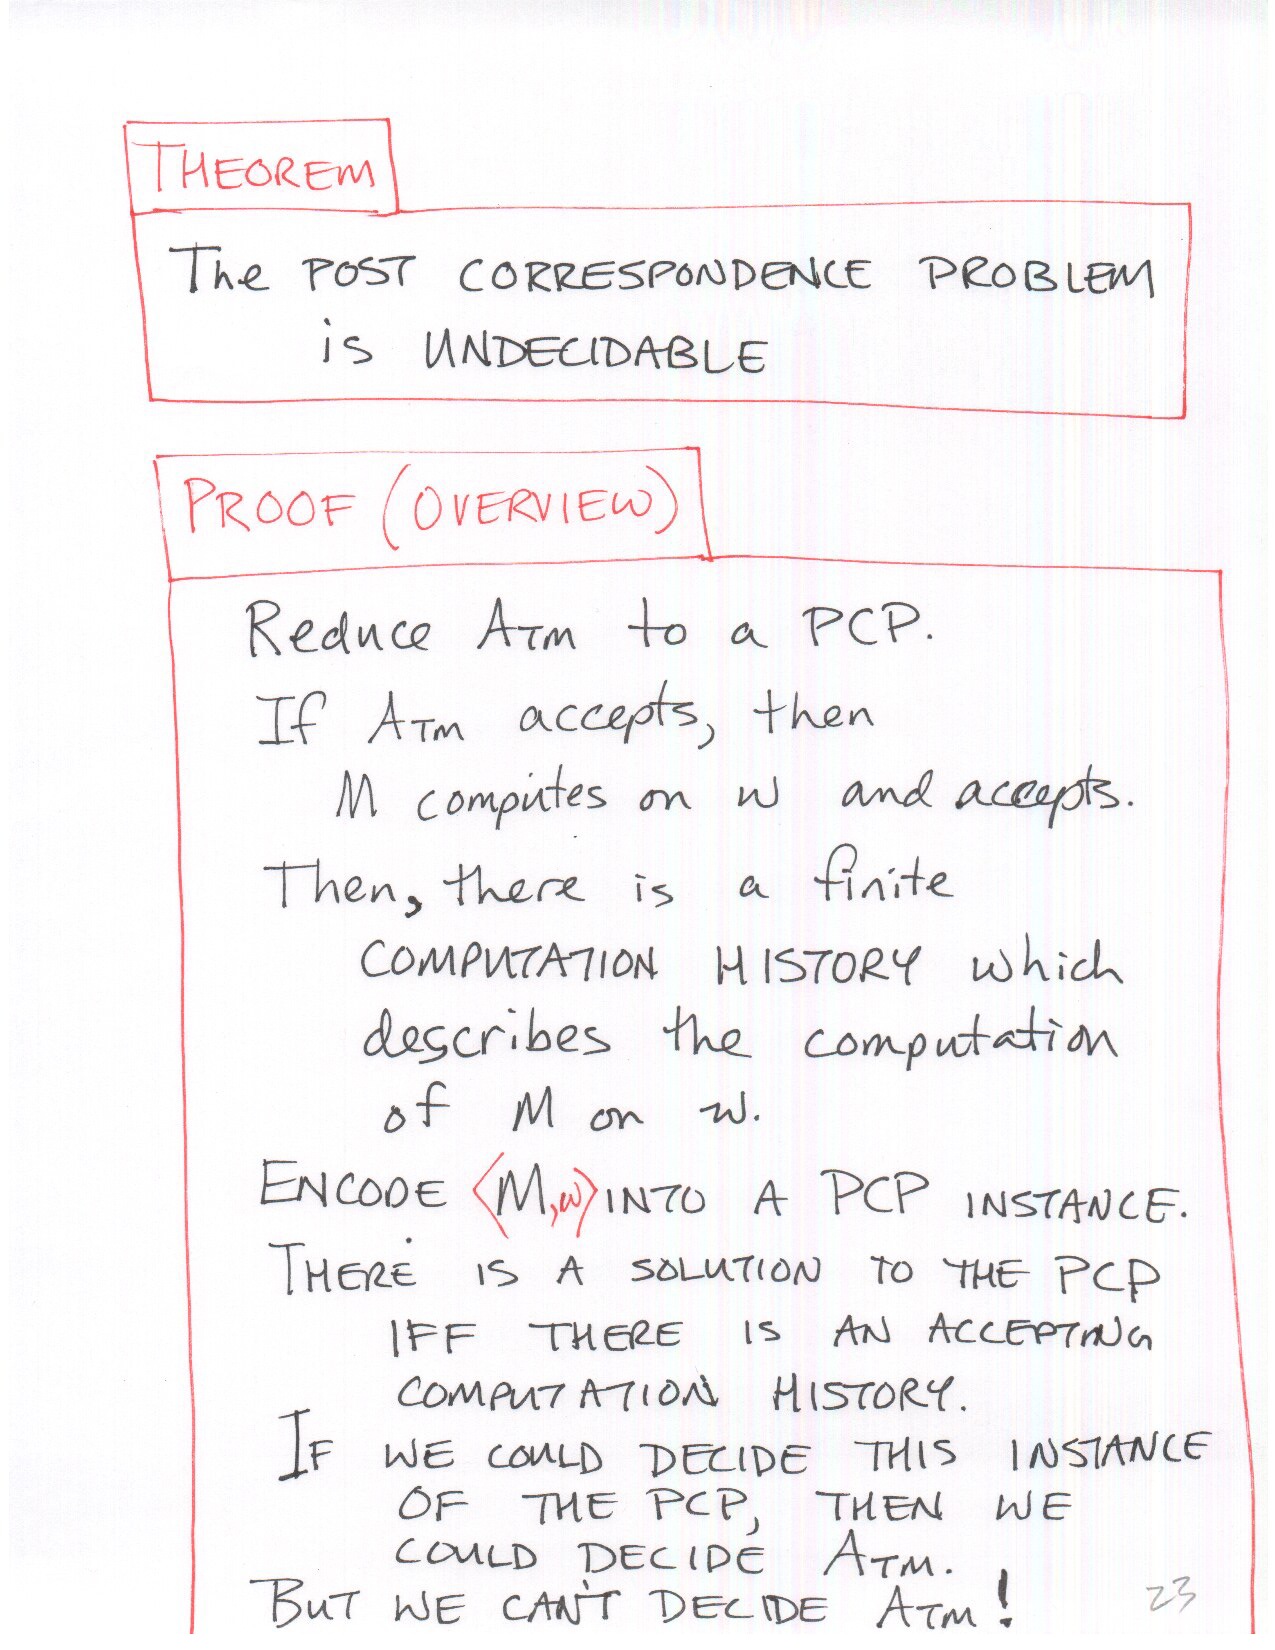 THEOREM
The POST CORRESPONDENCE PROBLEM
is UNDECIDABLE
PROOF (OVERVIEW)
Reduce ATM to a PCP.
If ATM accepts, then
M computes on w and accepts.
Then, there is a finite
COMPUTATION HISTORY which
describes the computation
of M on w.
ENCODE ⟨M,w⟩ INTO A PCP INSTANCE.
THERE IS A SOLUTION TO THE PCP
IFF THERE IS AN ACCEPTING
COMPUTATION HISTORY.
IF WE COULD DECIDE THIS INSTANCE
OF THE PCP, THEN WE
COULD DECIDE ATM.
BUT WE CAN'T DECIDE ATM!
23